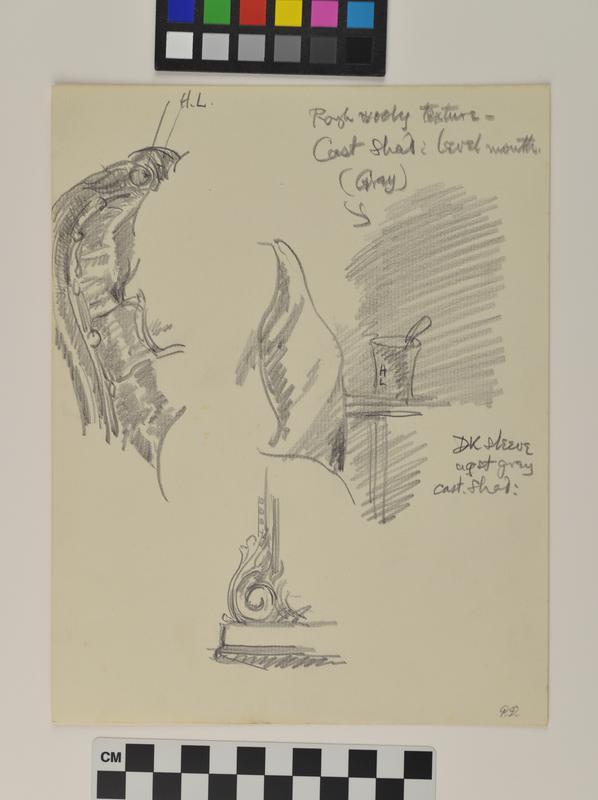 H.L.
Rough wooly texture -
Cast Shad: level mouth.
(Gray)
H
L
DK sleeve
agst gray
cast. Shad:
CM